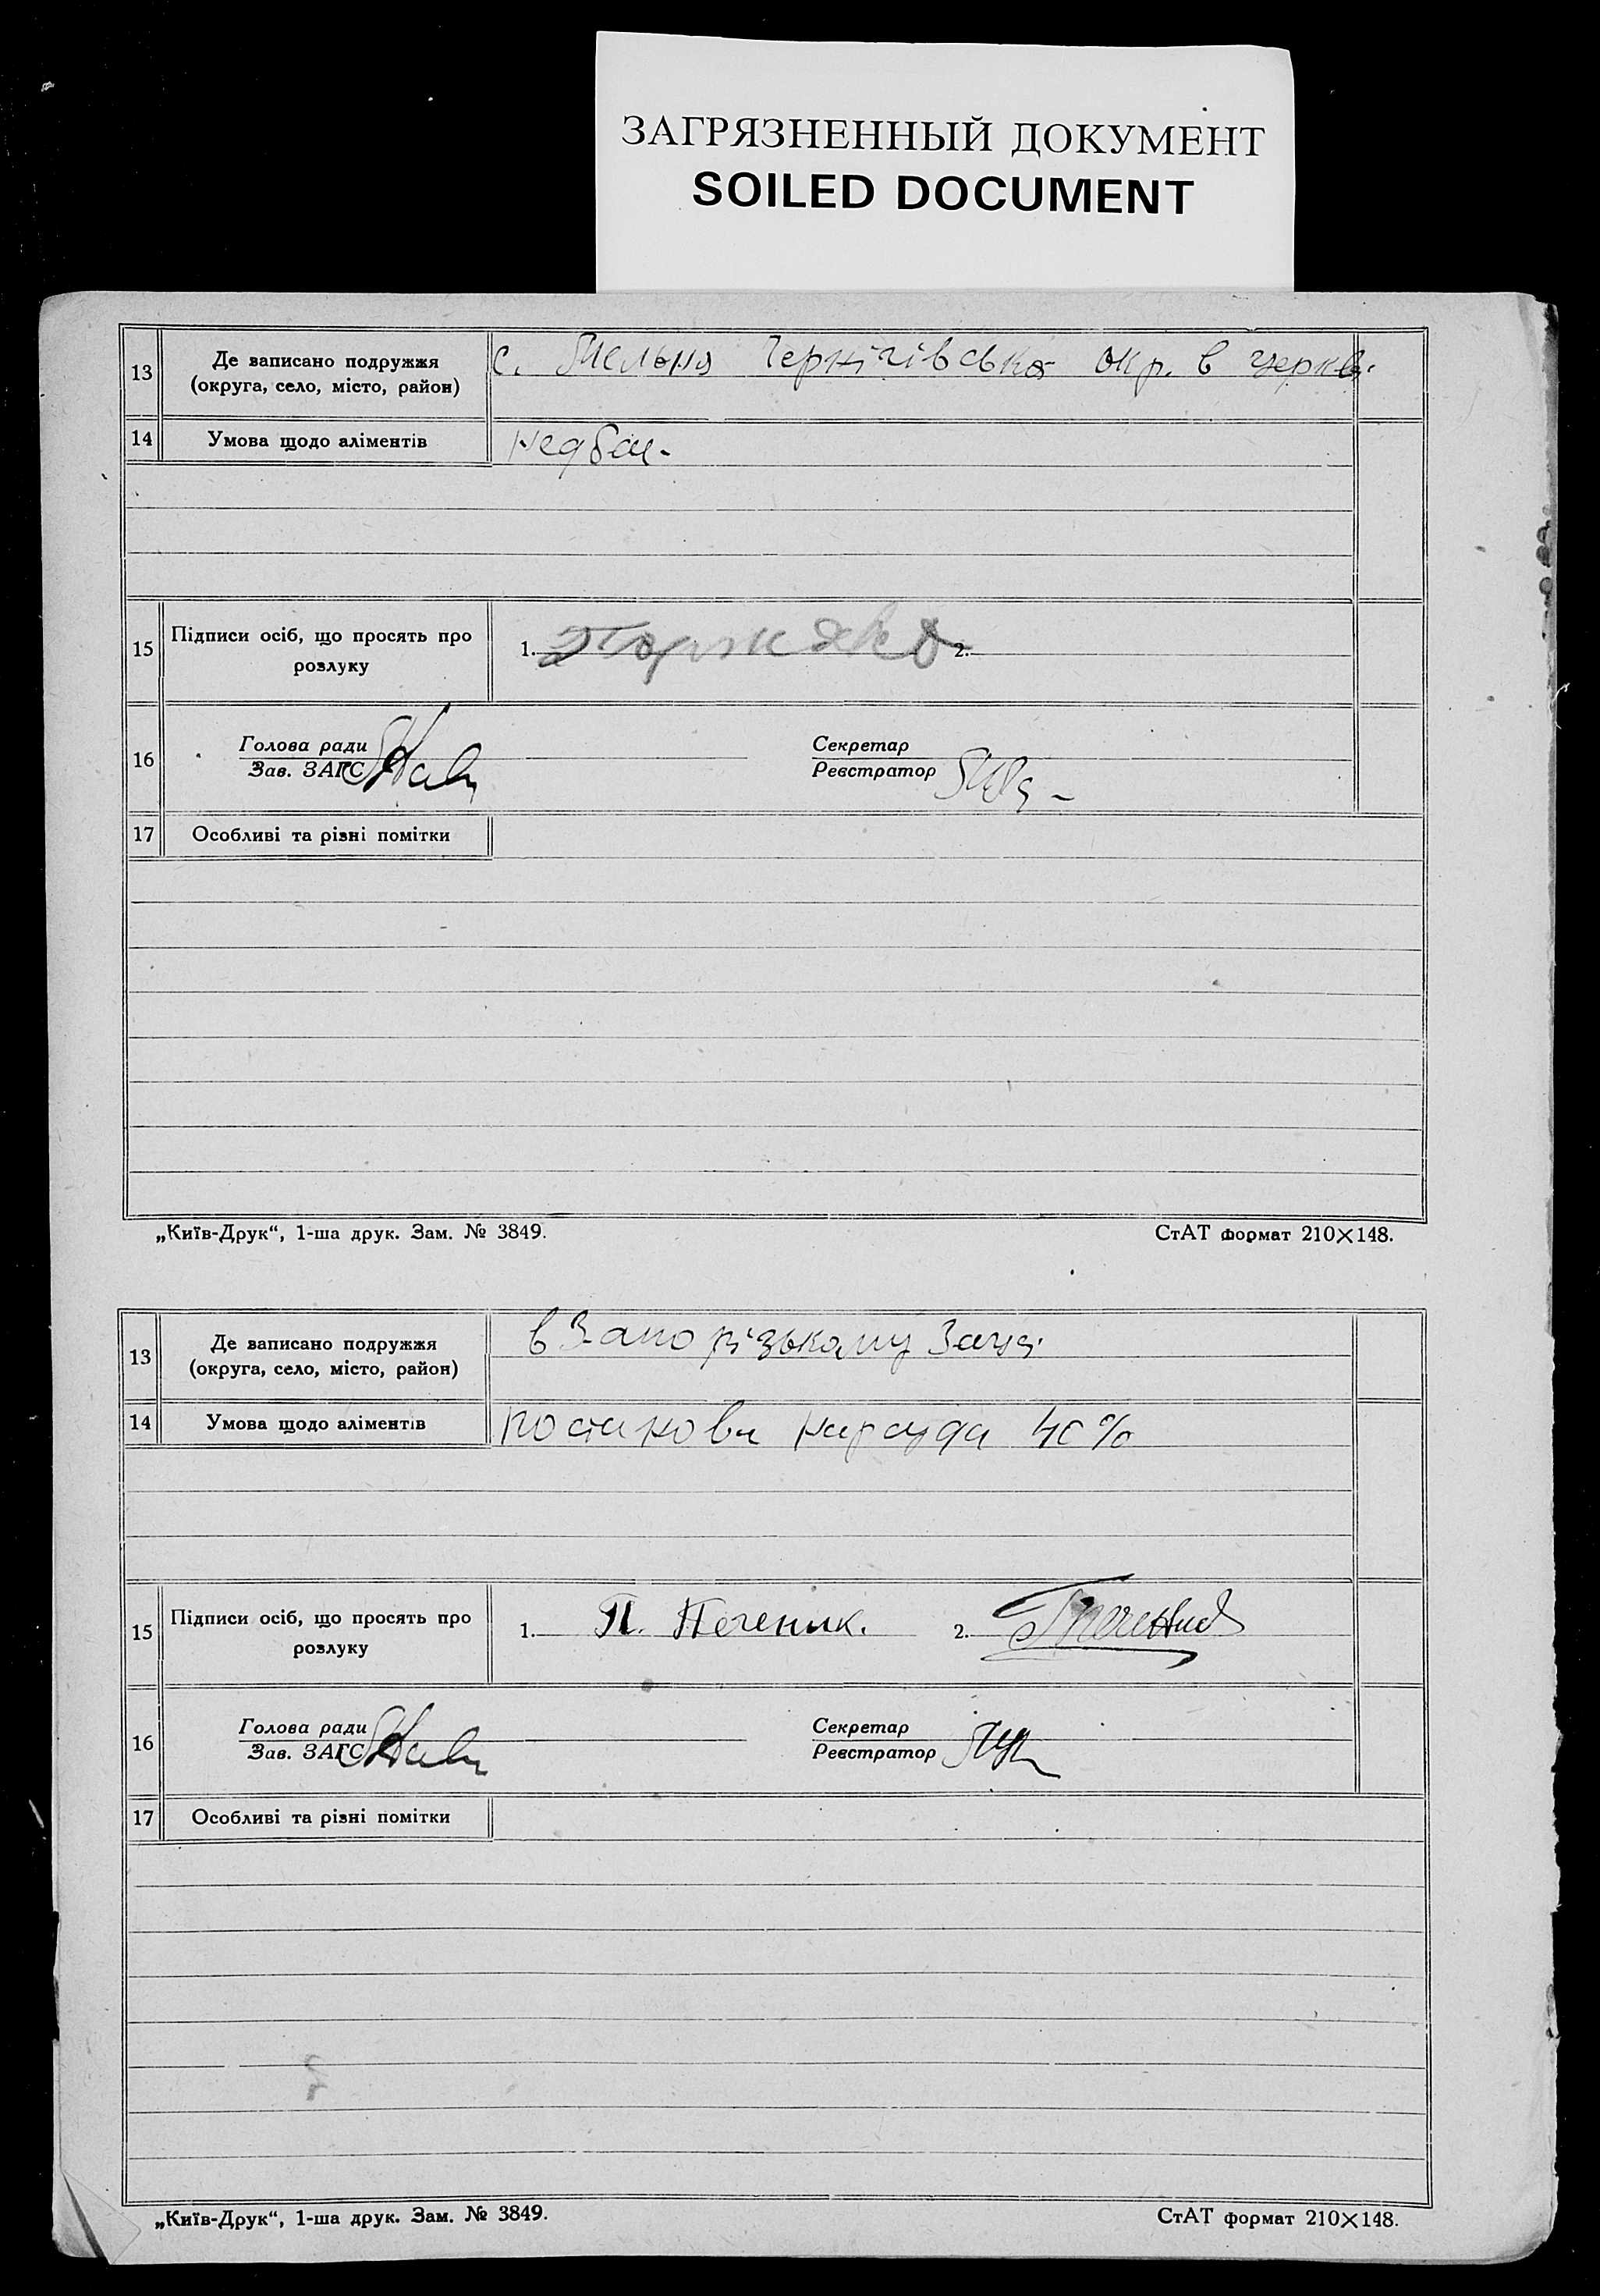 ЗАГРЯЗНЕННЫЙ ДОКУМЕНТ
SOILED DOCUMENT
13 Де записано подружжя (округа, село, місто, район) с. Чернігівська окр. в церкві
14 Умова щодо аліментів
15 Підписи осіб, що просять про розлуку 1. 2.
16 Голова ради Секретар
Зав. ЗАГС Реєстратор
17 Особливі та різні помітки
„Київ-Друк“, 1-ша друк. Зам. № 3849. СтАТ формат 210×148.
13 Де записано подружжя (округа, село, місто, район) в Запорізькому Загсі
14 Умова щодо аліментів постанова нарсуда 40%
15 Підписи осіб, що просять про розлуку 1. П. Печеник. 2.
16 Голова ради Секретар
Зав. ЗАГС Реєстратор
17 Особливі та різні помітки
„Київ-Друк“, 1-ша друк. Зам. № 3849. СтАТ формат 210×148.